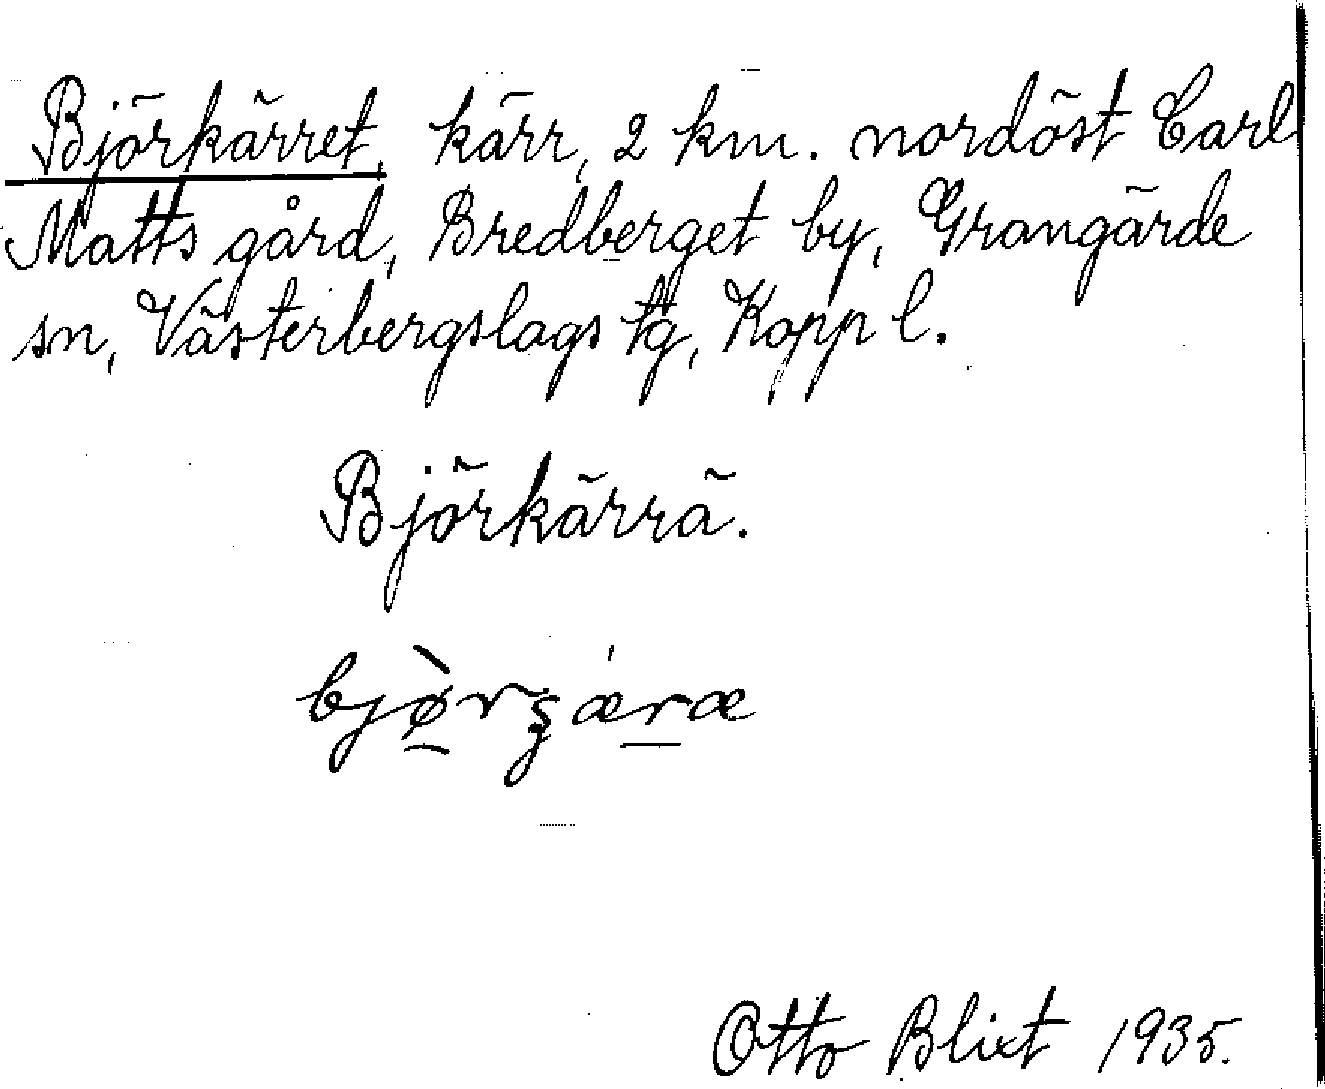 Björkärret, kärr, 2 km. nordöst Carl
Matts gård, Bredberget by, Grangärde
sn, Västerbergslags tg, Kopp l.
Björkärrä.
bjø̀rʒǽræ
Otto Blixt 1935.